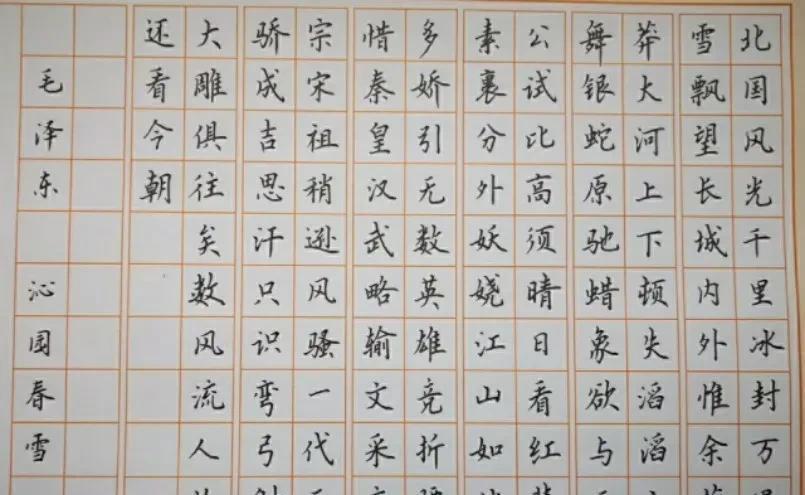 北国风光千里冰封万
雪飘望长城内外惟余
莽大河上下顿失滔滔
舞银蛇原驰蜡象欲与
公试比高须晴日看红
素裹分外妖娆江山如
多娇引无数英雄竞折
惜秦皇汉武略输文采
宗宋祖稍逊风骚一代
骄成吉思汗只识弯弓
大雕俱往矣数风流人
还看今朝
毛泽东 沁园春雪